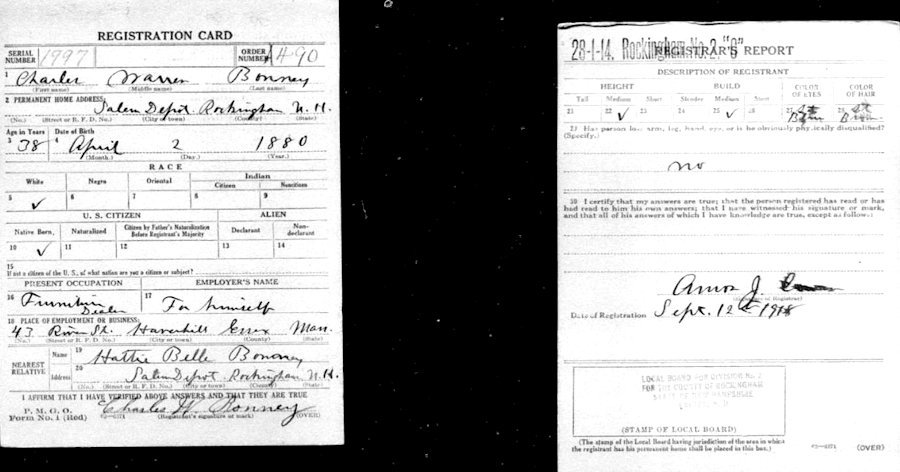 REGISTRATION CARD
SERIAL NUMBER 1997 ORDER NUMBER A490
1 Charles Warren Bonney
(First name) (Middle name) (Last name)
2 PERMANENT HOME ADDRESS:
Salem Depot Rockingham N.H.
(No.) (Street or R. F. D. No.) (City or town) (County) (State)
Age in Years Date of Birth
3 38 4 April 2 1880
(Month.) (Day.) (Year.)
RACE
White Negro Oriental Indian
Citizen Noncitizen
5 ✓ 6 7 8 9
U. S. CITIZEN ALIEN
Native Born. Naturalized Citizen by Father's Naturalization Before Registrant's Majority Declarant Non-declarant
10 ✓ 11 12 13 14
15
If not a citizen of the U. S., of what nation are you a citizen or subject?
PRESENT OCCUPATION EMPLOYER'S NAME
16 Furniture Dealer 17 For himself
18 PLACE OF EMPLOYMENT OR BUSINESS:
43 River St. Haverhill Essex Mass.
(No.) (Street or R. F. D. No.) (City or town) (County) (State)
NEAREST RELATIVE
Name 19 Hattie Belle Bonney
Address 20 Salem Depot Rockingham N.H.
(No.) (Street or R. F. D. No.) (City or town) (County) (State)
I AFFIRM THAT I HAVE VERIFIED ABOVE ANSWERS AND THAT THEY ARE TRUE
P. M. G. O.
Form No. 1 (Red) Charles W. Bonney
(Registrant's signature or mark) (OVER)
28-1-14. Rockingham No. 2. "C"
REGISTRAR'S REPORT
DESCRIPTION OF REGISTRANT
HEIGHT BUILD COLOR OF EYES COLOR OF HAIR
Tall Medium Short Slender Medium Stout
21 22 ✓ 23 24 25 ✓ 26 27 28
29 Has person lost arm, leg, hand, eye, or is he obviously physically disqualified?
(Specify.)
no
30 I certify that my answers are true; that the person registered has read or has
had read to him his own answers; that I have witnessed his signature or mark,
and that all of his answers of which I have knowledge are true, except as follows:
Amos J.
(Signature of Registrar)
Date of Registration Sept. 12th 1918
LOCAL BOARD FOR DIVISION NO. 2
FOR THE COUNTY OF ROCKINGHAM
STATE OF NEW HAMPSHIRE
(STAMP OF LOCAL BOARD)
(The stamp of the Local Board having jurisdiction of the area in which
the registrant has his permanent home shall be placed in this box.) (OVER)